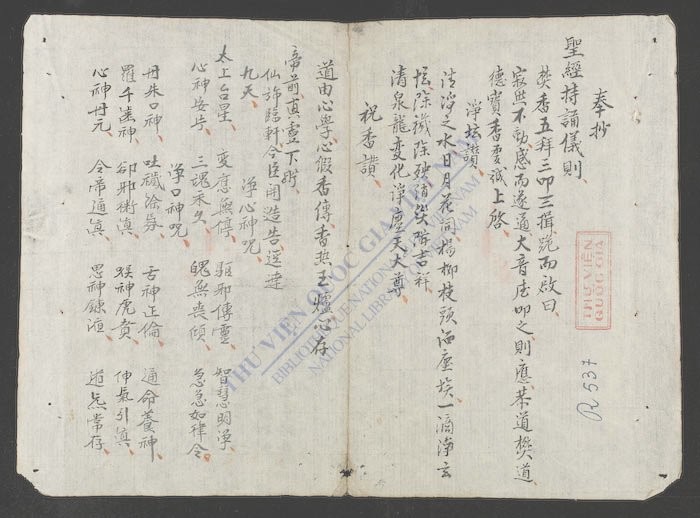 奉抄
聖經持誦儀則
焚香五拜三叩三揖跪而啟曰
寂然不動感而遂通大音希叩之則應恭道焚道
德寶香虔誠上啓
淨坛讃
清淨之水日月花洞楊柳枝頭洒塵埃一滴淨玄
坛除穢除殃消災降吉祥
清泉龍變化淨塵天大尊
祝香讃
道由心學心假香傳香热玉爐心存
帝前真靈下盼
仙斾臨軒今臣関造告迳達
九天
淨心神咒
太上台星 变應無停 驅邪傳灵 智慧明净
心神安宁 三魂永久 魄無丧倾 急急如律令
淨口神咒
丹朱口神 吐穢除氛 舌神正倫 通命養神
羅千遙神 卻邪衛真 喉神虎賁 伸氣引眞
心神丹元 令帝通真 思神鍊液 道炁常存
THƯ VIỆN
QUỐC GIA
R 537
THƯ VIỆN QUỐC GIA VIỆT NAM
BIBLIOTHEQUE NATIONALE DU VIETNAM
NATIONAL LIBRARY OF VIETNAM